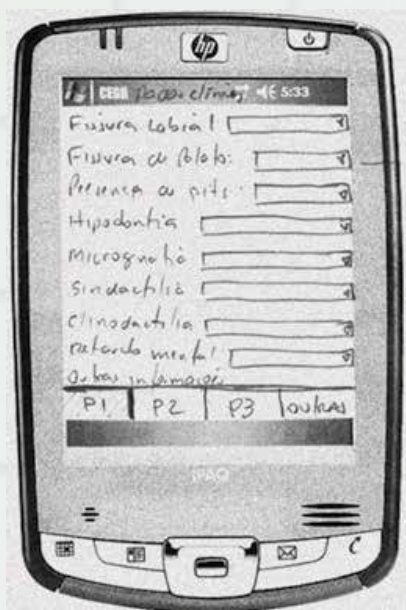 hp
CEGH Dados clínic 5:33
Fissura Labial
Fissura de Palato:
Presença de pits:
Hipodontia
Micrognatia
Sindactilia
Clinodactilia
Retardo mental
Outras informações
P1 P2 P3 OUTRAS
iPAQ